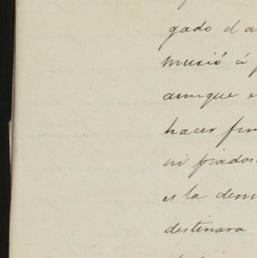 gado d a
murió á p
aunque e
hacer fin
ni piados
es la dem
destinara